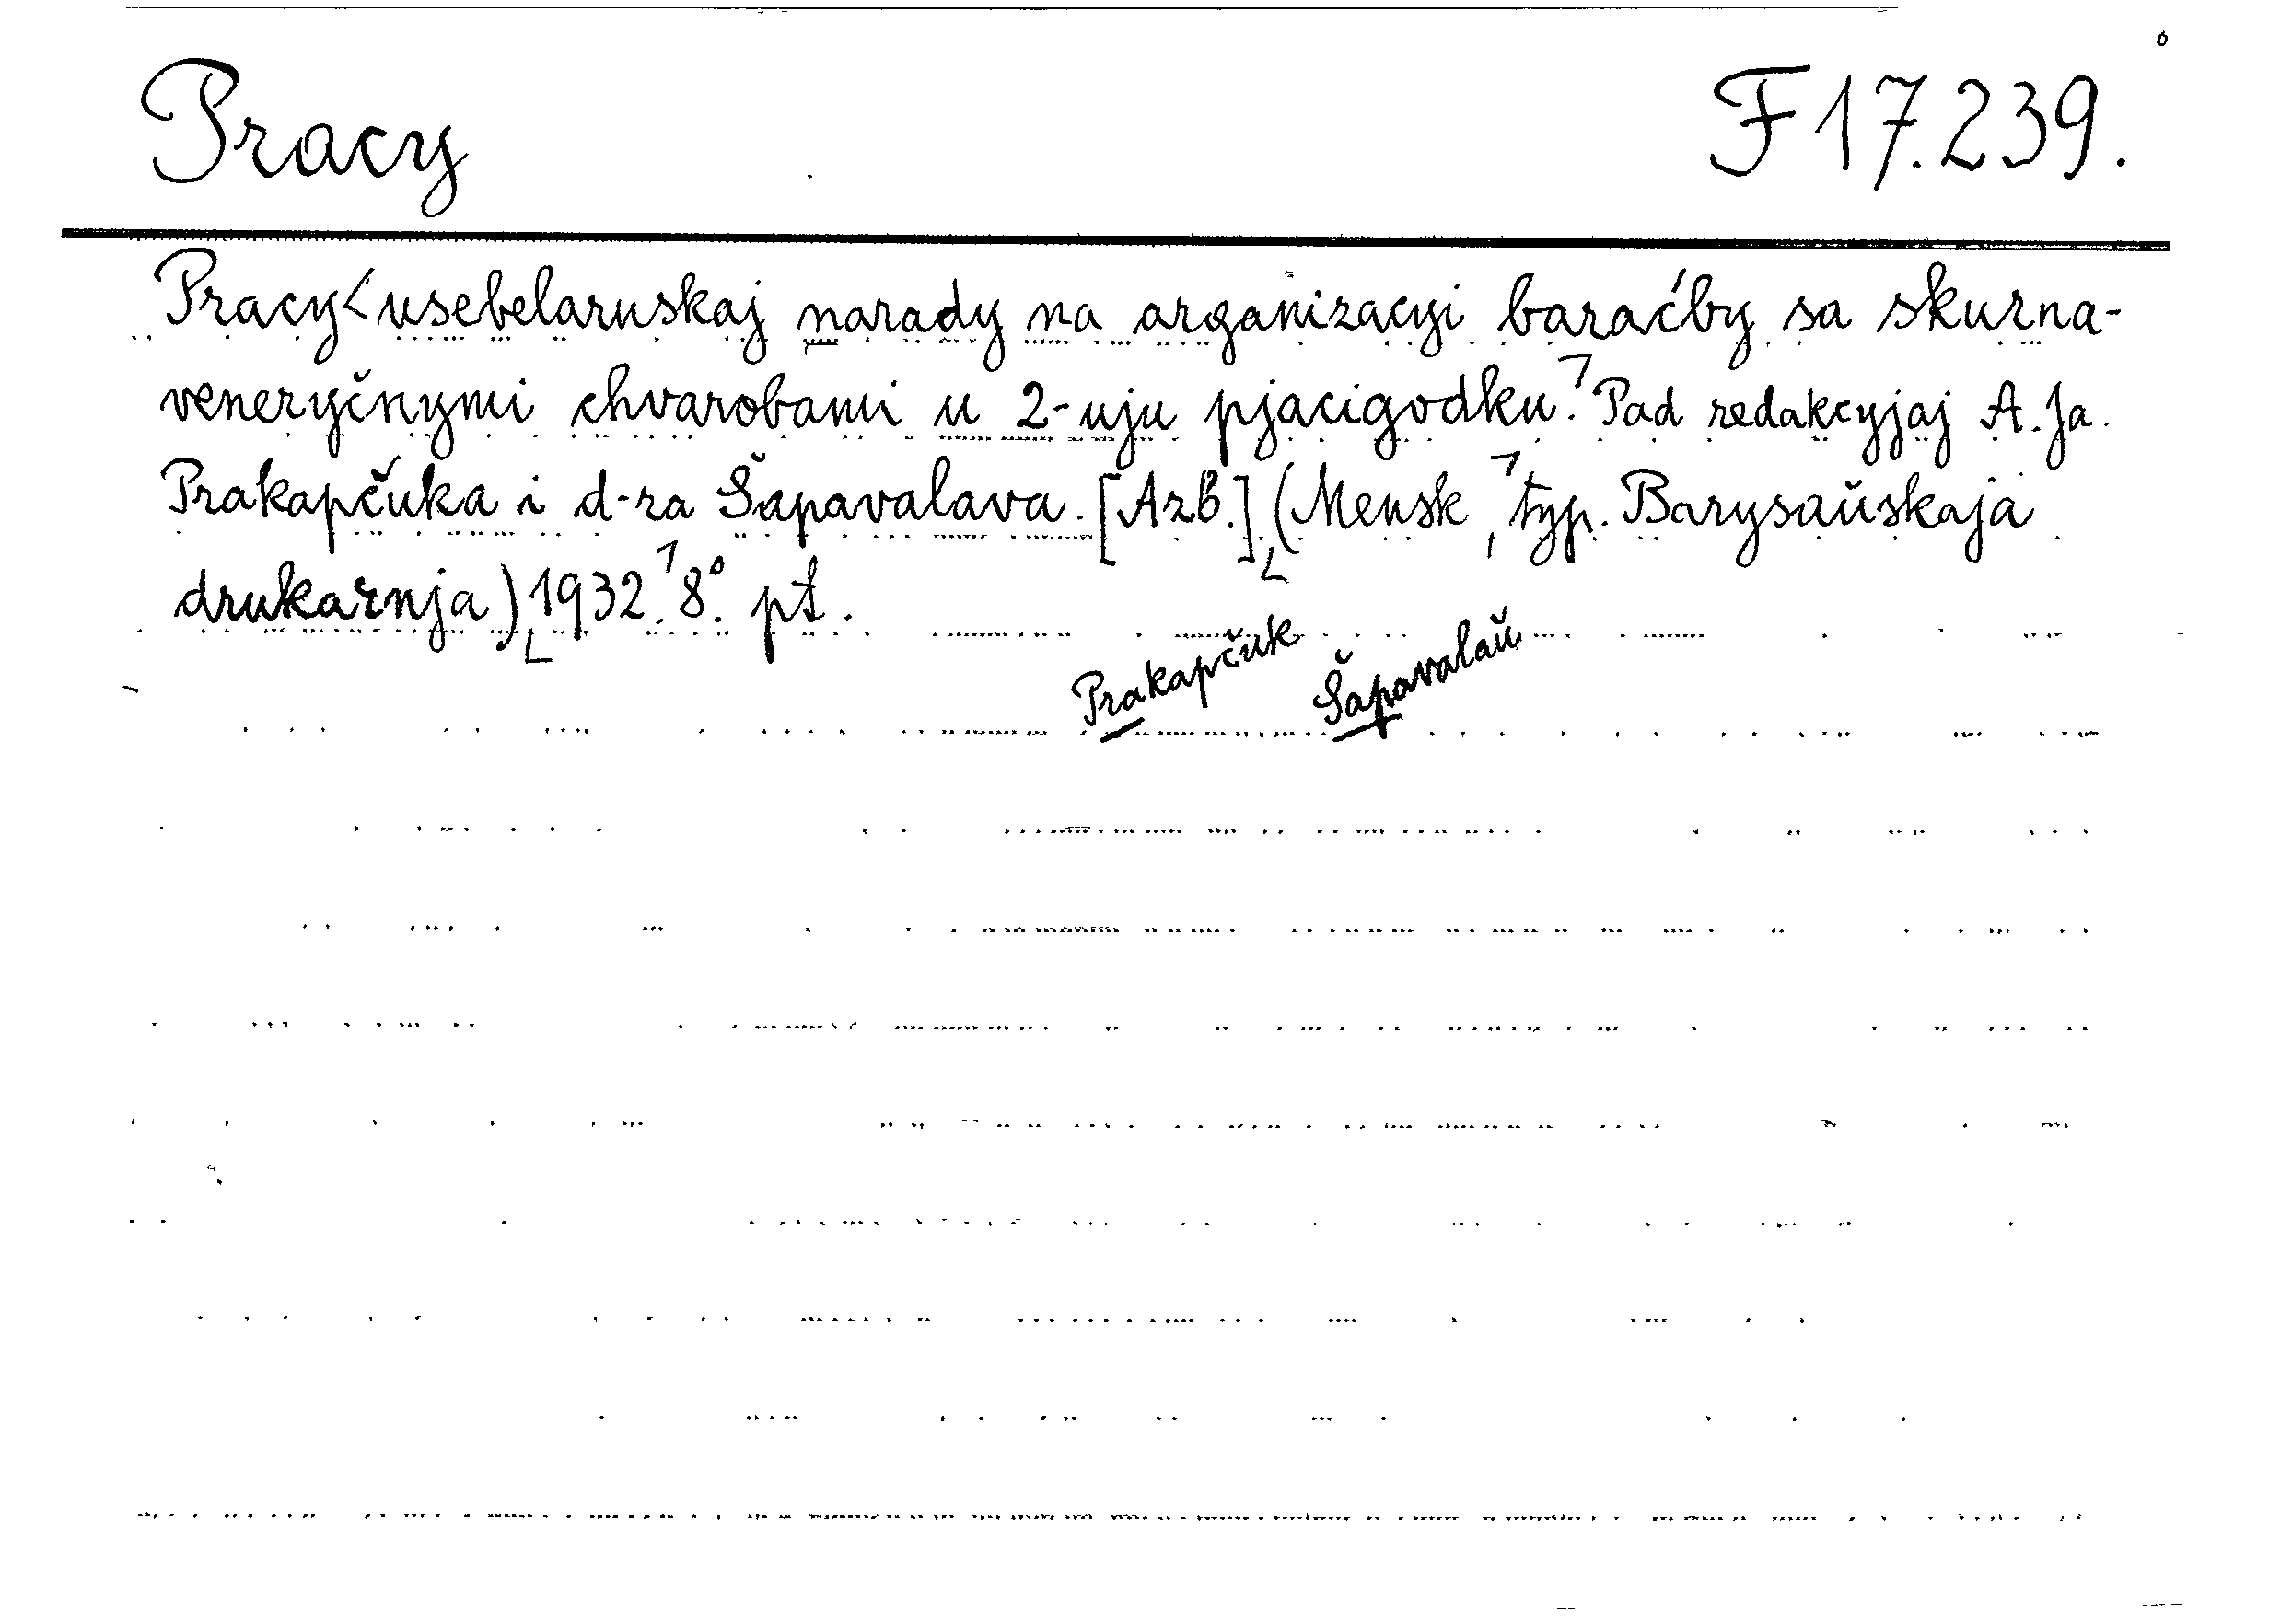 Pracy F 17.239.
Pracy<usebelaruskaj narady na arganizacyi baraćby sa skurna-
veneryčnymi chvarobami u 2-uju pjacigodku.⌉ Pad redakcyjaj A. Ja.
Prakapčuka i d-ra Šapavalava. [Azb.] ⌊(Mensk⌉, typ. Barysaŭskaja
drukarnja) ⌊1932.⌉ 8°. pt.
Prakapčuk Šapavalaŭ